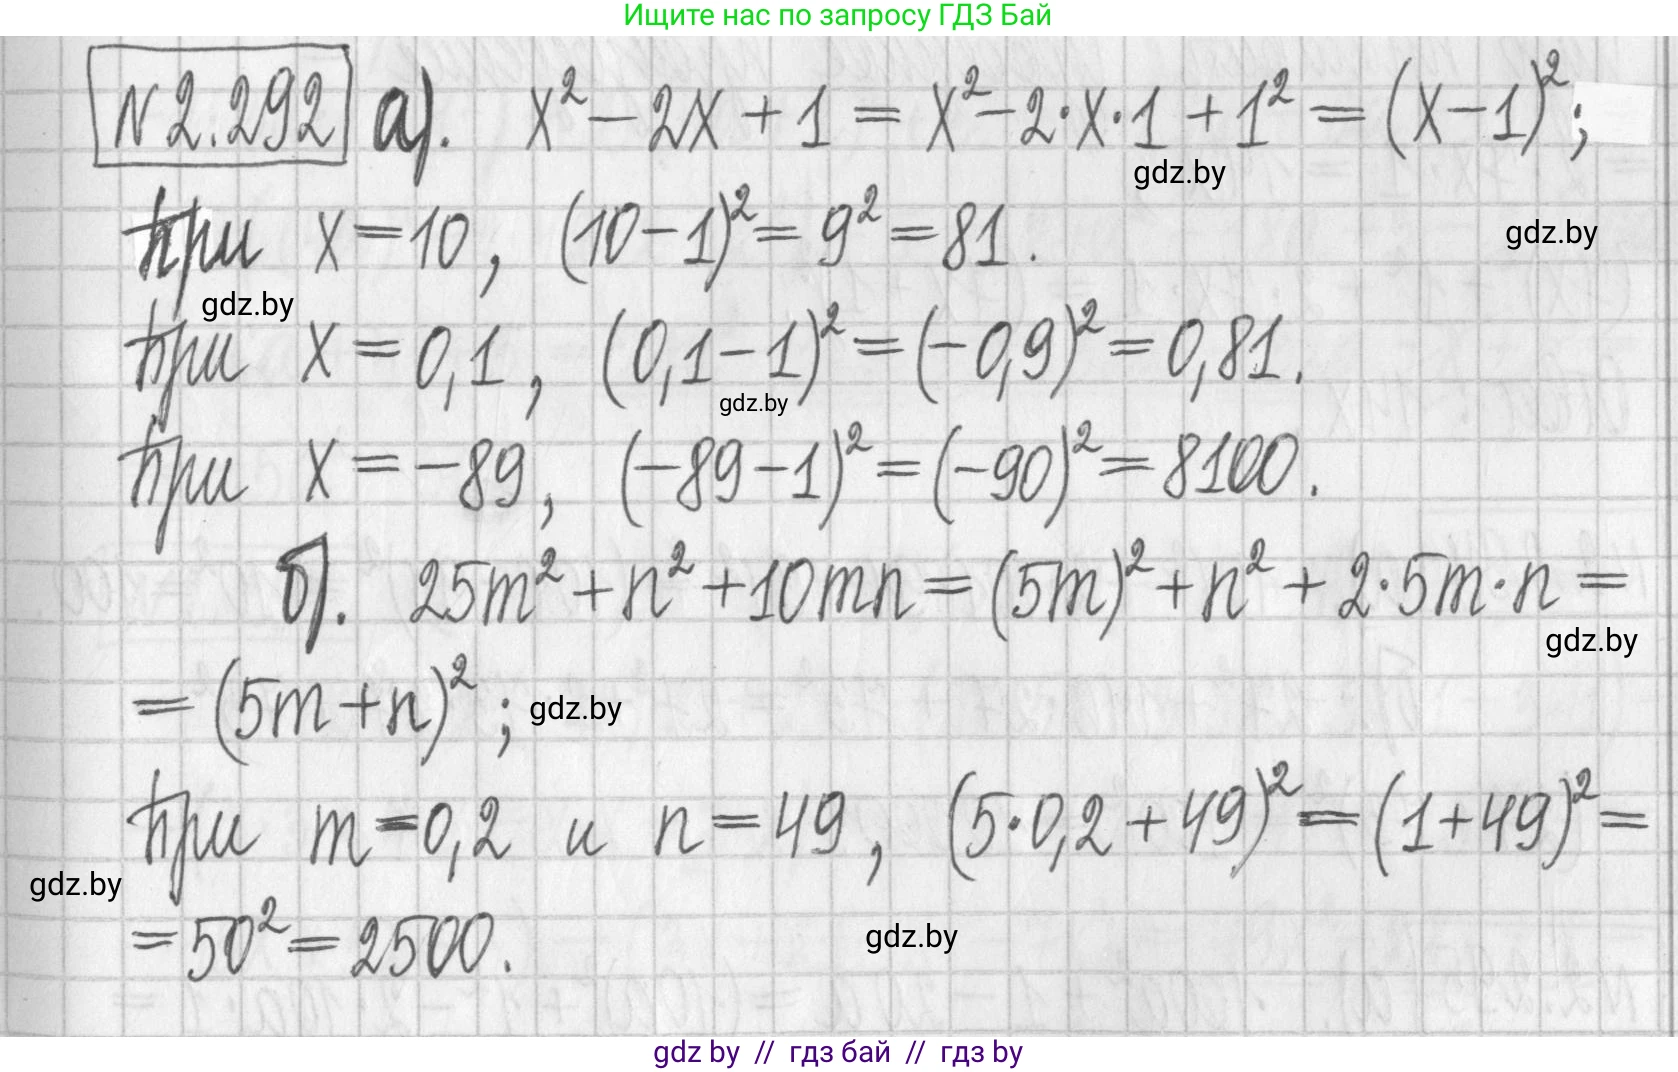 Ищите нас по запросу ГДЗ Бай
N 2.292 а). x² − 2x + 1 = x² − 2·x·1 + 1² = (x − 1)²;
gdz.by
При x = 10, (10 − 1)² = 9² = 81.
gdz.by
gdz.by
При x = 0,1, (0,1 − 1)² = (−0,9)² = 0,81.
gdz.by
При x = −89, (−89 − 1)² = (−90)² = 8100.
б). 25m² + n² + 10mn = (5m)² + n² + 2·5m·n =
gdz.by
= (5m + n)²; gdz.by
При m = 0,2 и n = 49, (5·0,2 + 49)² = (1 + 49)² =
gdz.by
= 50² = 2500.
gdz.by
gdz by // гдз бай // гдз by